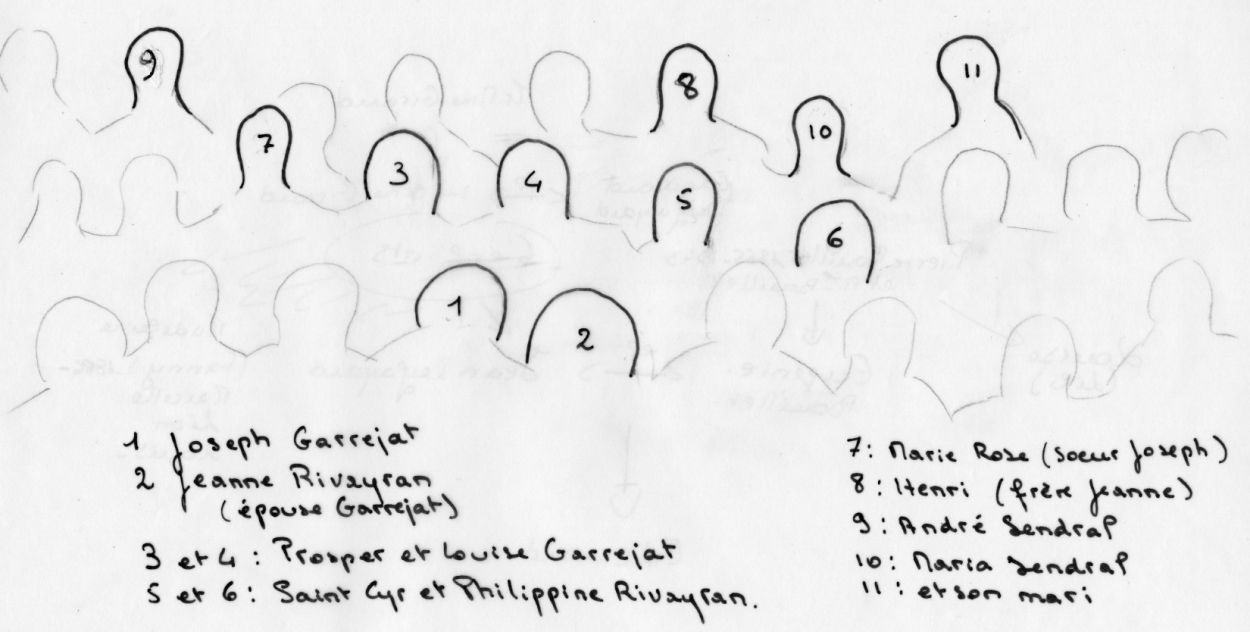 9
8
11
7
10
3
4
5
6
1
2
1 Joseph Garrejat
2 Jeanne Rivayran
(épouse Garrejat)
3 et 4 : Prosper et Louise Garrejat
5 et 6 : Saint Cyr et Philippine Rivayran.
7 : Marie Rose (soeur Joseph)
8 : Henri (frère Jeanne)
9 : André Sendral
10 : Maria Sendral
11 : et son mari